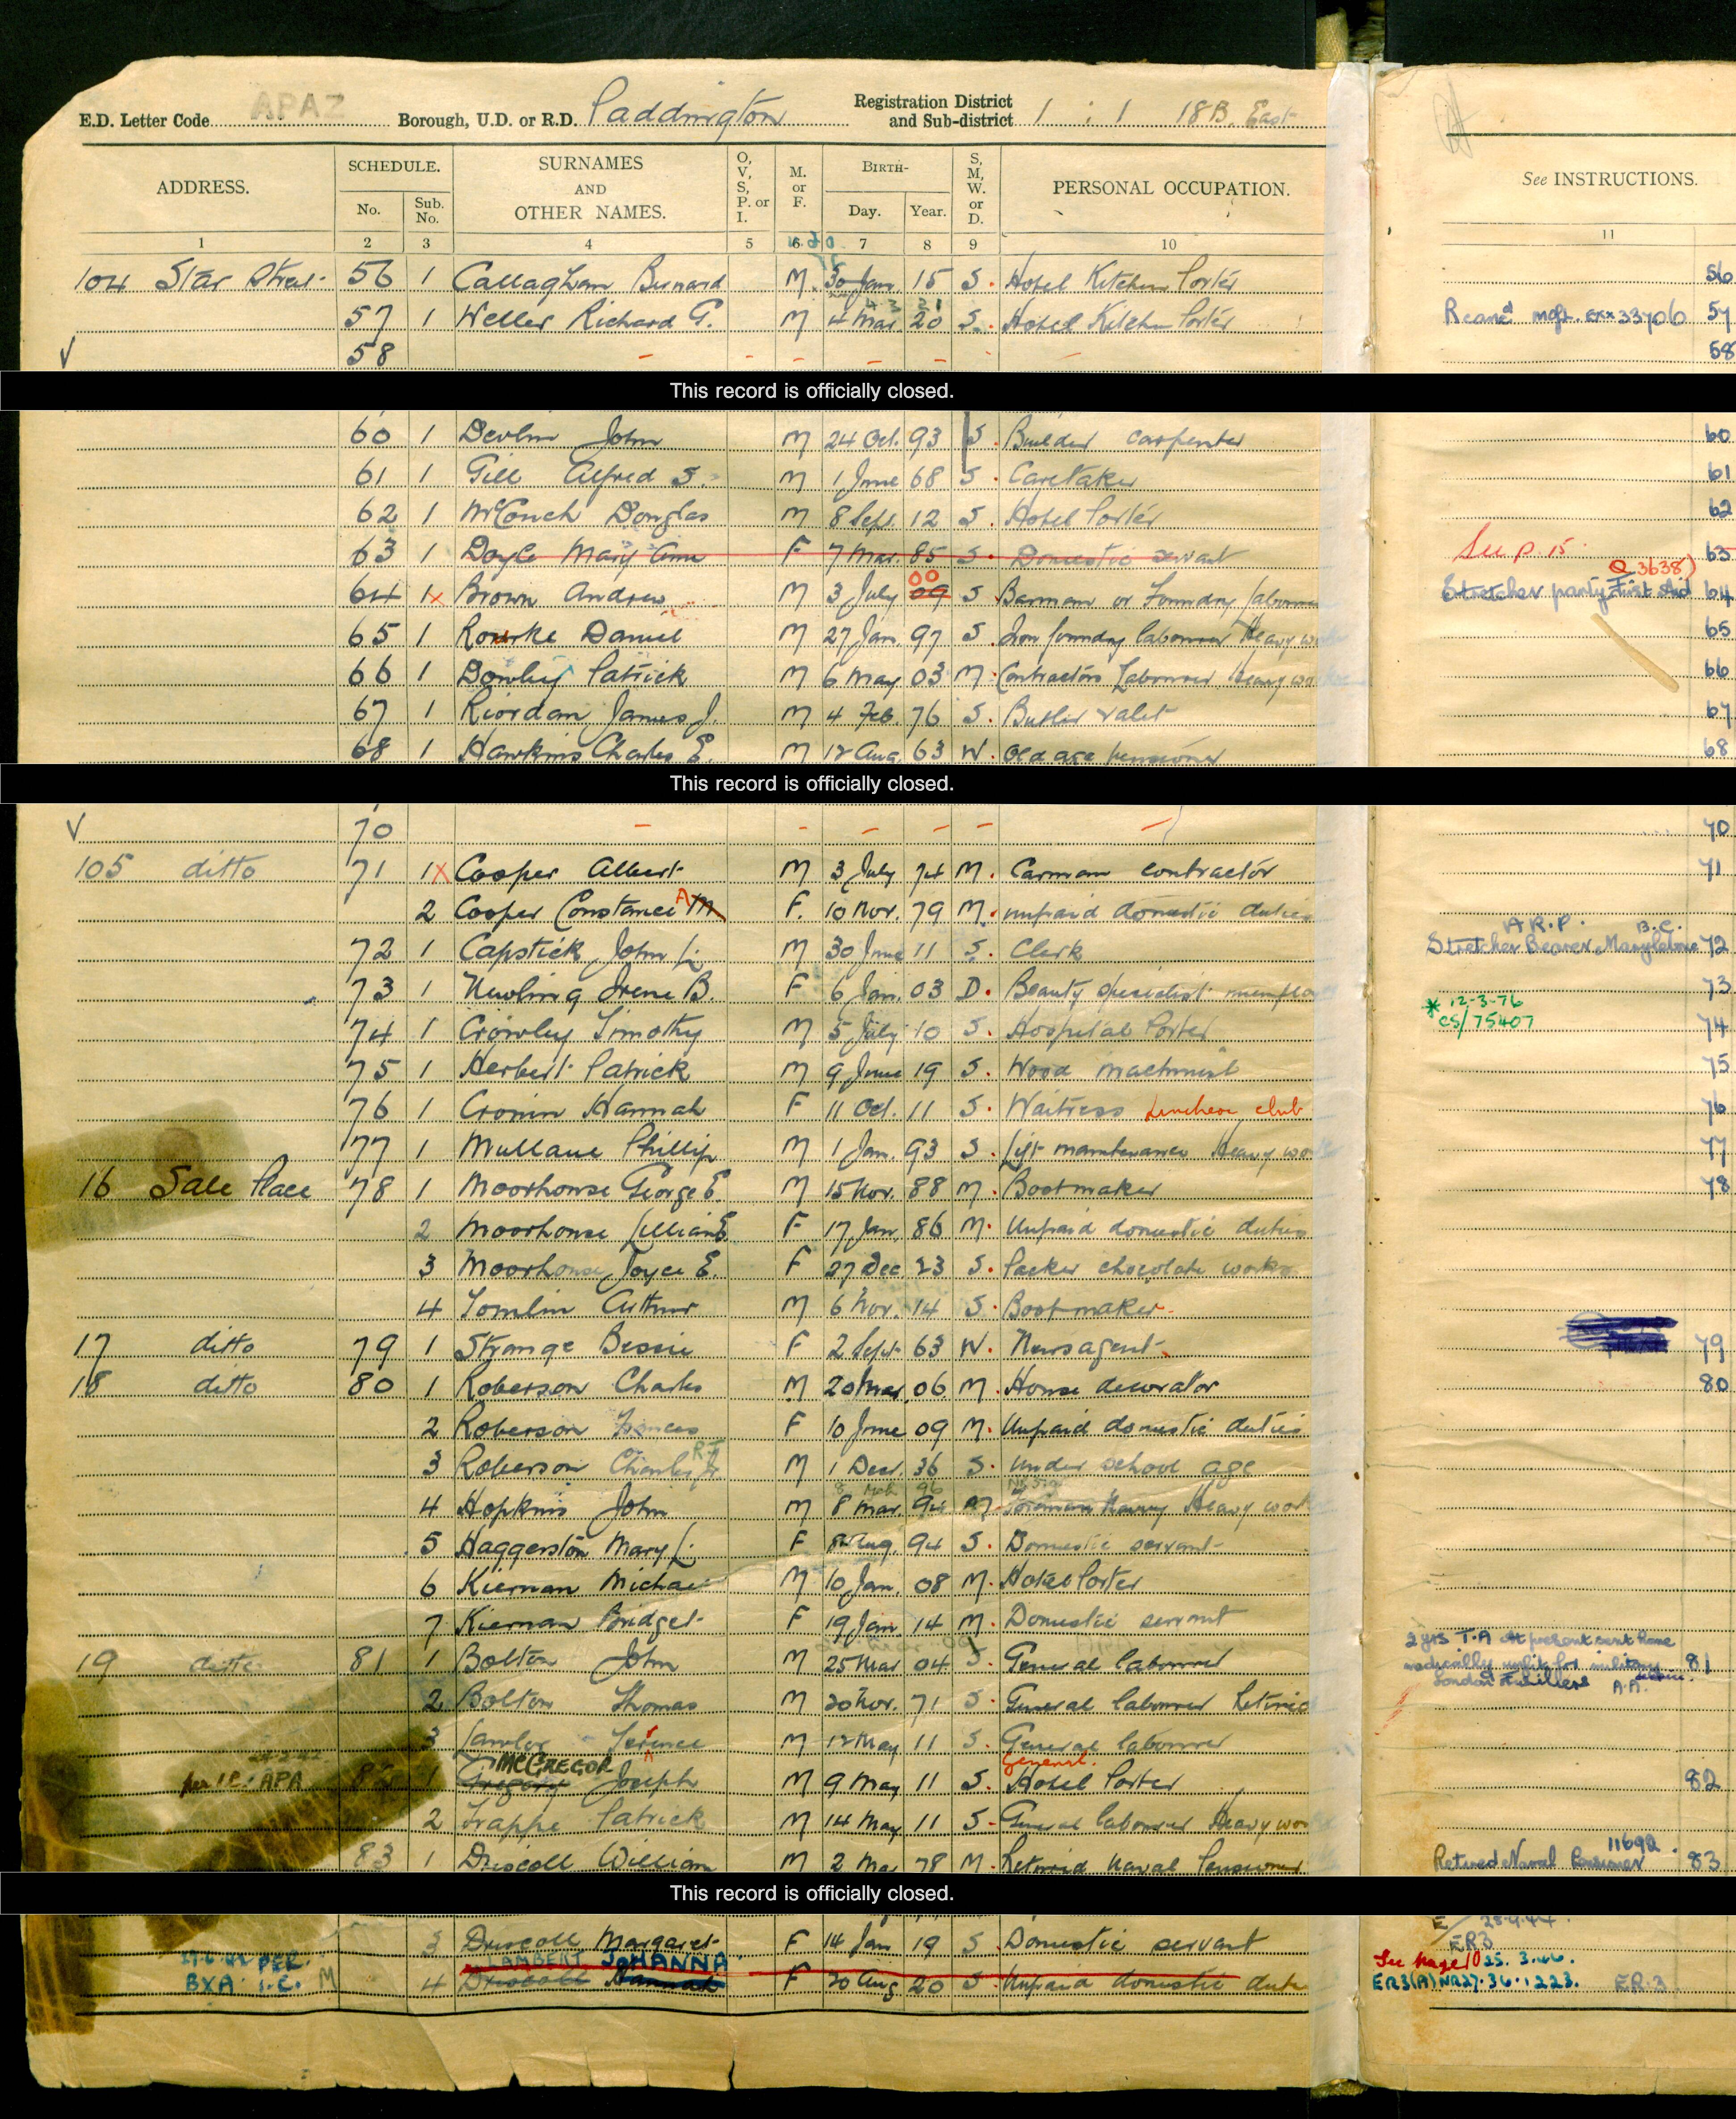 E.D. Letter Code APAZ Borough, U.D. or R.D. Paddington Registration District and Sub-district 1 : 1 18B. East
ADDRESS. SCHEDULE. No. Sub. No. SURNAMES AND OTHER NAMES. O, V, S, P. or I. M. or F. BIRTH- Day. Year. S, M, W. or D. PERSONAL OCCUPATION. See INSTRUCTIONS.
1 2 3 4 5 6 7 8 9 10 11
104 Star Street 56 1 Callaghan Bernard M. 30 Jan. 15 S. Hotel Kitchen Porter 56
57 1 Weller Richard G. M 4 Mar. 20 S. Hotel Kitchen Porter 33706 57
58 – – – – – 58
This record is officially closed.
60 1 Devlin John M 24 Oct. 93 S. Builder carpenter 60
61 1 Gill Alfred S. M 1 June 68 S. Caretaker 61
62 1 McConch Douglas M 8 Sept. 12 S. Hotel Porter 62
63 1 Doyle Mary Ann F 7 Mar. 85 S. Domestic servant See p. 15 63
64 1x Brown Andrew M 3 July 09 00 S Barman or Foundry labourer Q 3638) Stretcher party First Aid 64
65 1 Rourke Daniel M 27 Jan. 97 S. Iron foundry labourer Heavy 65
66 1 Dowley Patrick M 6 May 03 M. Contractors Labourer Heavy 66
67 1 Riordan James J. M 4 Feb. 76 S. Butler valet 67
68 1 Hawkins Charles E. M 12 Aug. 63 W. Old age pensioner 68
This record is officially closed.
70 – – – – – – 70
105 ditto 71 1x Cooper Albert M 3 July 74 M. Carman contractor 71
2 Cooper Constance M A F. 10 Nov. 79 M. unpaid domestic duties
72 1 Capstick John L. M 30 June 11 S. Clerk A.R.P. B.C. Stretcher Bearer. Marylebone 72
73 1 Newling Irene B. F 6 Jan. 03 D. Beauty specialist 73
74 1 Crowley Timothy M 5 July 10 S. Hospital Porter * 12-3-76 CS/75407 74
75 1 Herbert Patrick M 9 June 19 S. Wood machinist 75
76 1 Cronin Hannah F 11 Oct. 11 S. Waitress Luncheon club 76
77 1 Mullane Phillip M 1 Jan. 93 S. Lift maintenance Heavy 77
16 Sale Place 78 1 Moorhouse George E. M 15 Nov. 88 M. Bootmaker 78
2 Moorhouse Lillian E F 17 Jan. 86 M. Unpaid domestic duties
3 Moorhouse Joyce E. F 27 Dec. 23 S. Packer chocolate works
4 Tomlin Arthur M 6 Nov. 14 S. Bootmaker
17 ditto 79 1 Strange Bessie F 2 Sept. 63 W. Newsagent 79
18 ditto 80 1 Roberson Charles M 20 Mar. 06 M. House decorator 80
2 Roberson Frances F 10 June 09 M. Unpaid domestic duties
3 Roberson Charles M 1 Dec. 36 S. Under school age
4 Hopkins John M 8 Mar. 94 M. Foreman Navvy Heavy
5 Haggerston Mary L. F Aug. 94 S. Domestic servant
6 Kiernan Michael M 10 Jan. 08 M. Hotel Porter
7 Kiernan Bridget F 19 Jan. 14 M. Domestic servant
19 ditto 81 1 Bolton John M 25 Mar 04 S. General labourer 2 yrs T.A At present sent home medically unfit for military London Fusiliers A.A. 81
2 Bolton Thomas M 20 Nov. 71 S General labourer Retired
3 Lawlor Terence M 12 May 11 S. General labourer
per I.C. APA 82 1 Gregory McGREGOR Joseph M 9 May 11 S. General. Hotel Porter 82
2 Trappe Patrick M 14 May 11 S. General labourer Heavy
83 1 Driscoll William M 2 Mar 78 M. Retired Naval Pensioner 11692. Retired Naval Pensioner 83
This record is officially closed.
3 Driscoll Margaret F 14 Jan 19 S. Domestic servant ER3
PER. BXA I.C. M 4 Driscoll Hannah LAMBERT JOHANNA F 20 Aug 20 S Unpaid domestic See page 10 25.3.46. ER3(A) NR27.36.1223. ER.3